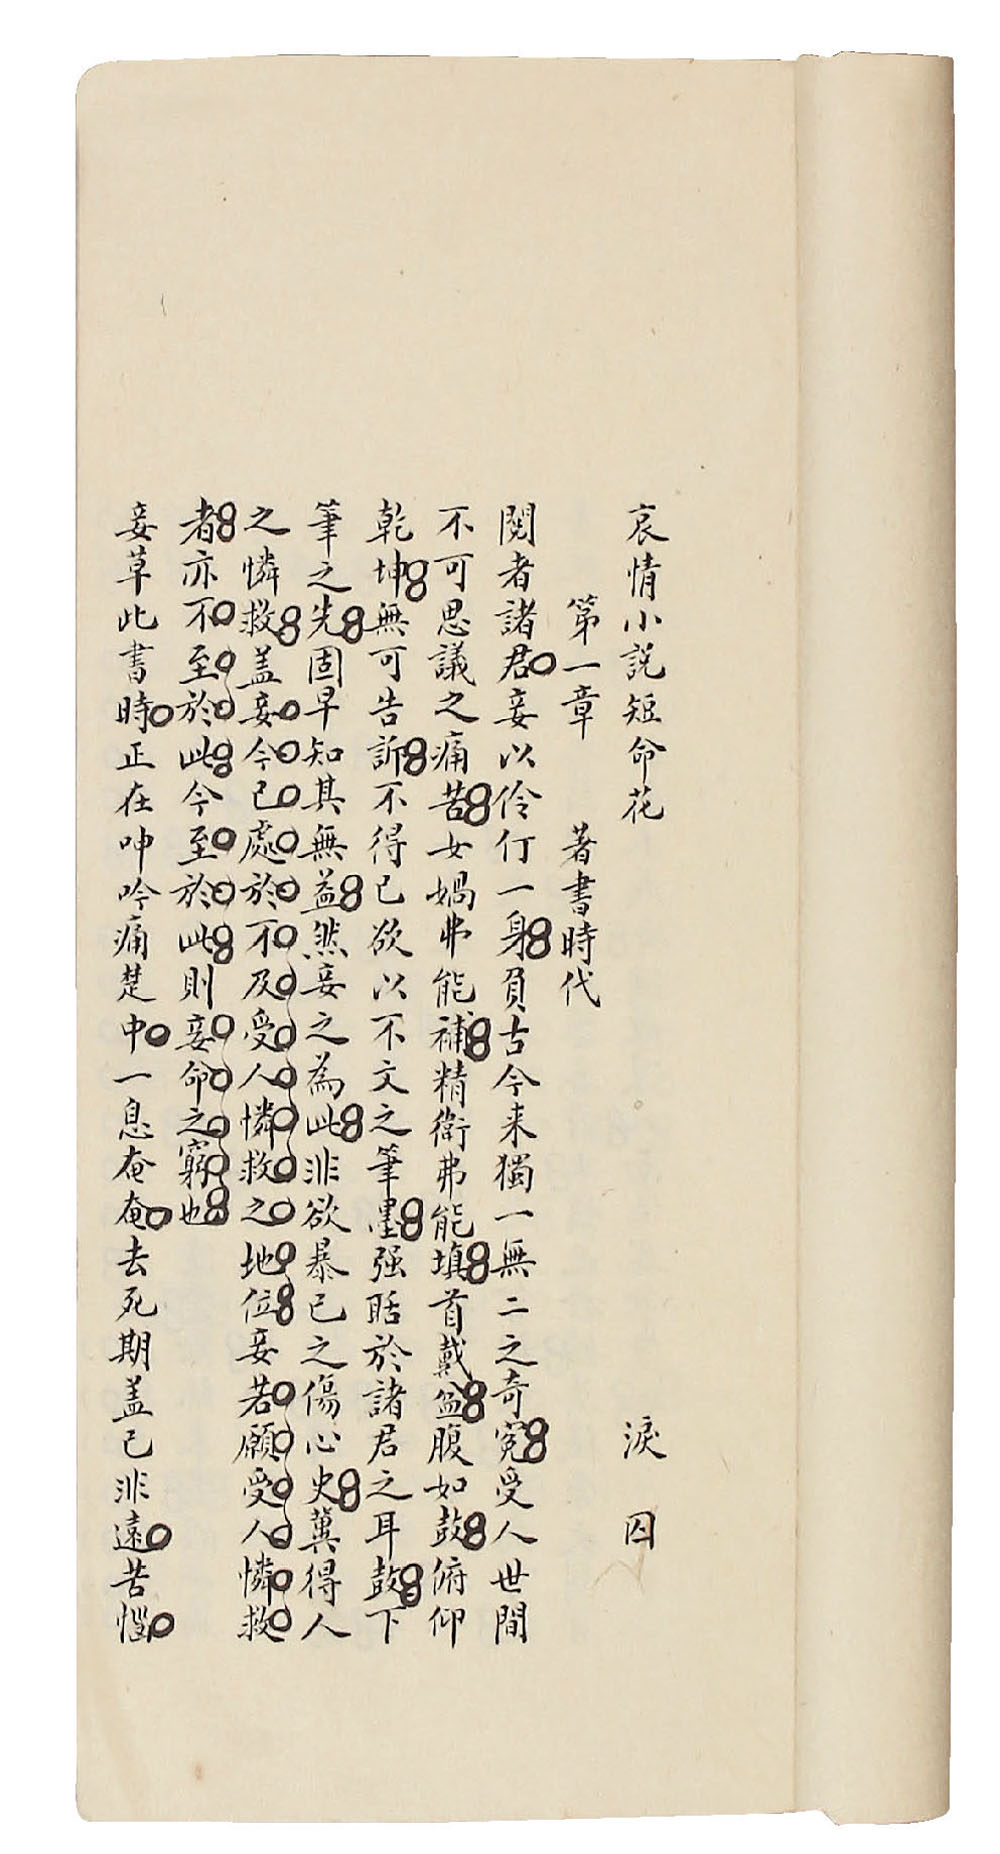 哀情小説短命花　淚囚
第一章　著書時代
閱者諸君妾以伶仃一身負古今来獨一無二之奇冤受人世間
不可思議之痛苦女媧弗能補精衛弗能填首戴盆腹如鼓俯仰
乾坤無可告訴不得已欲以不文之筆墨强聒於諸君之耳鼓下
筆之先固早知其無益然妾之為此非欲暴己之傷心史冀得人
之憐救盖妾今已處於不及受人憐救之地位妾若願受人憐救
者亦不至於此今至於此則妾命之窮也
妾草此書時正在呻吟痛楚中一息奄奄去死期盖已非遠苦惱